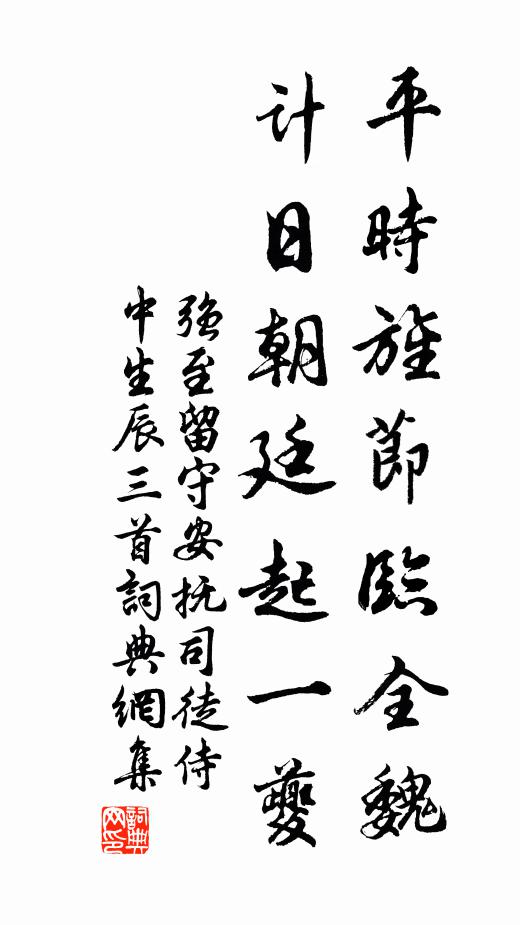 平時旌節臨全魏
計日朝廷起一夔
強至留守安抚司徒侍
中生辰三首詞典網集
詞典網印